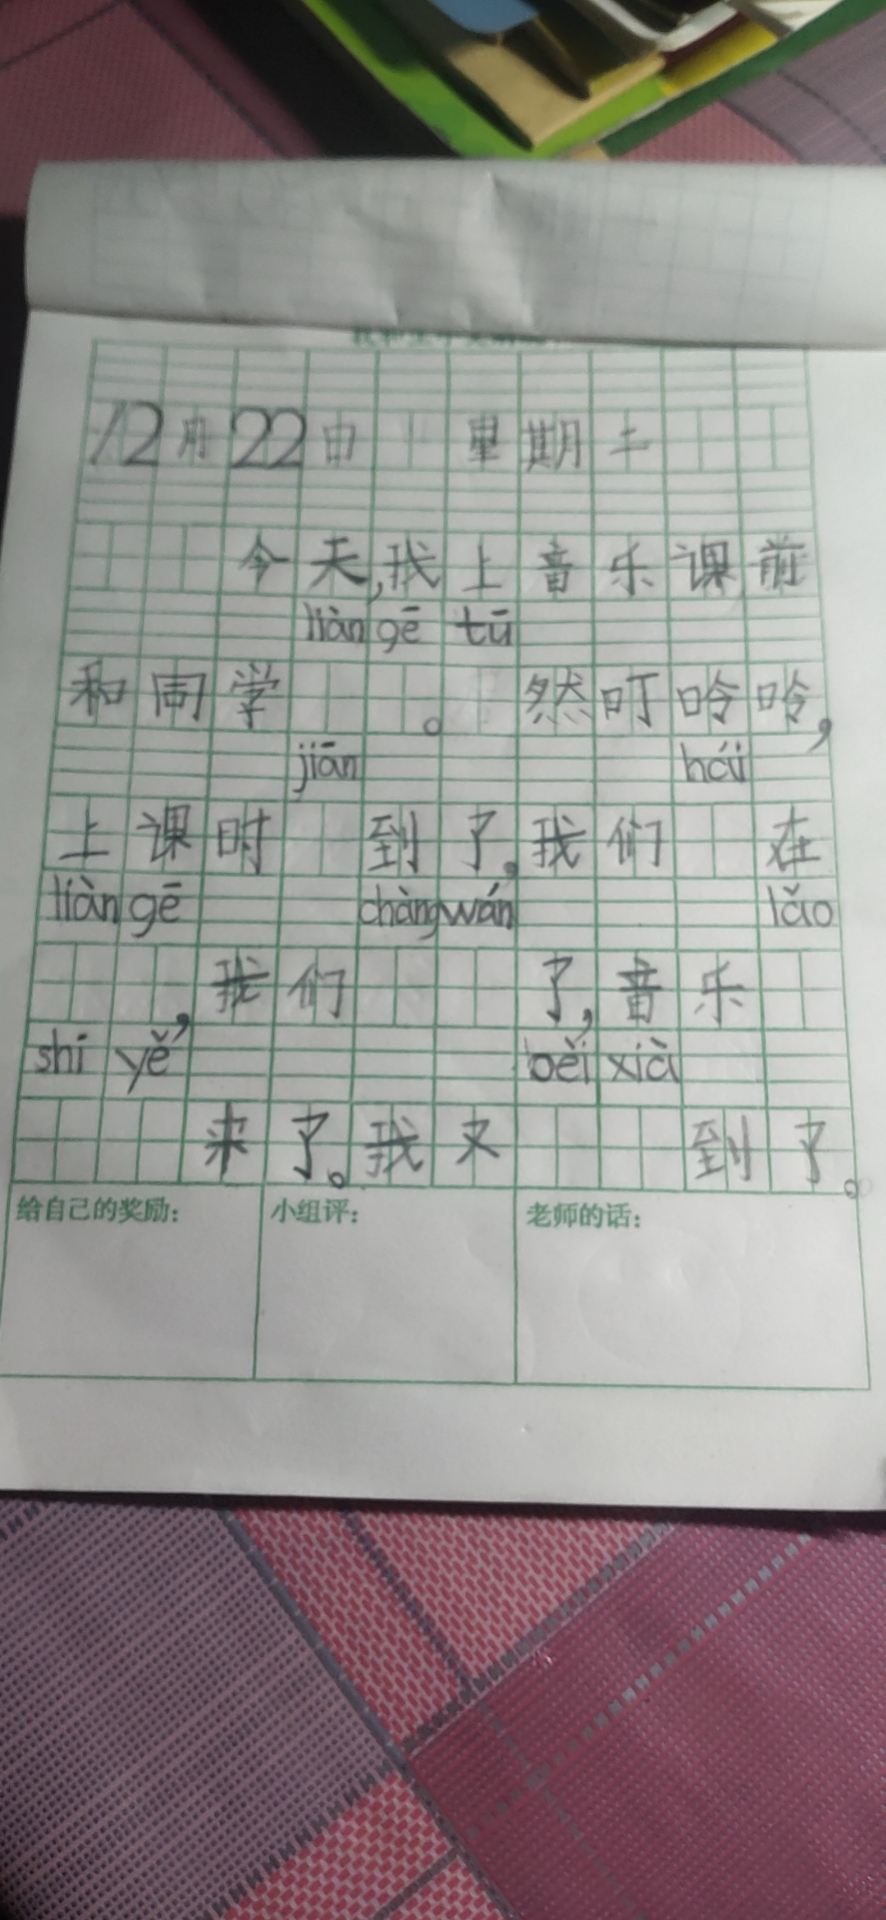 12月22日 星期二
今天,我上音乐课前
liàn gē tū
和同学。然叮呤呤,
jiān hái
上课时到了,我们在
liàn gē chàng wán lǎo
,我们了,音乐
shī yě bèi xià
来了。我又到了。
给自己的奖励:
小组评:
老师的话: